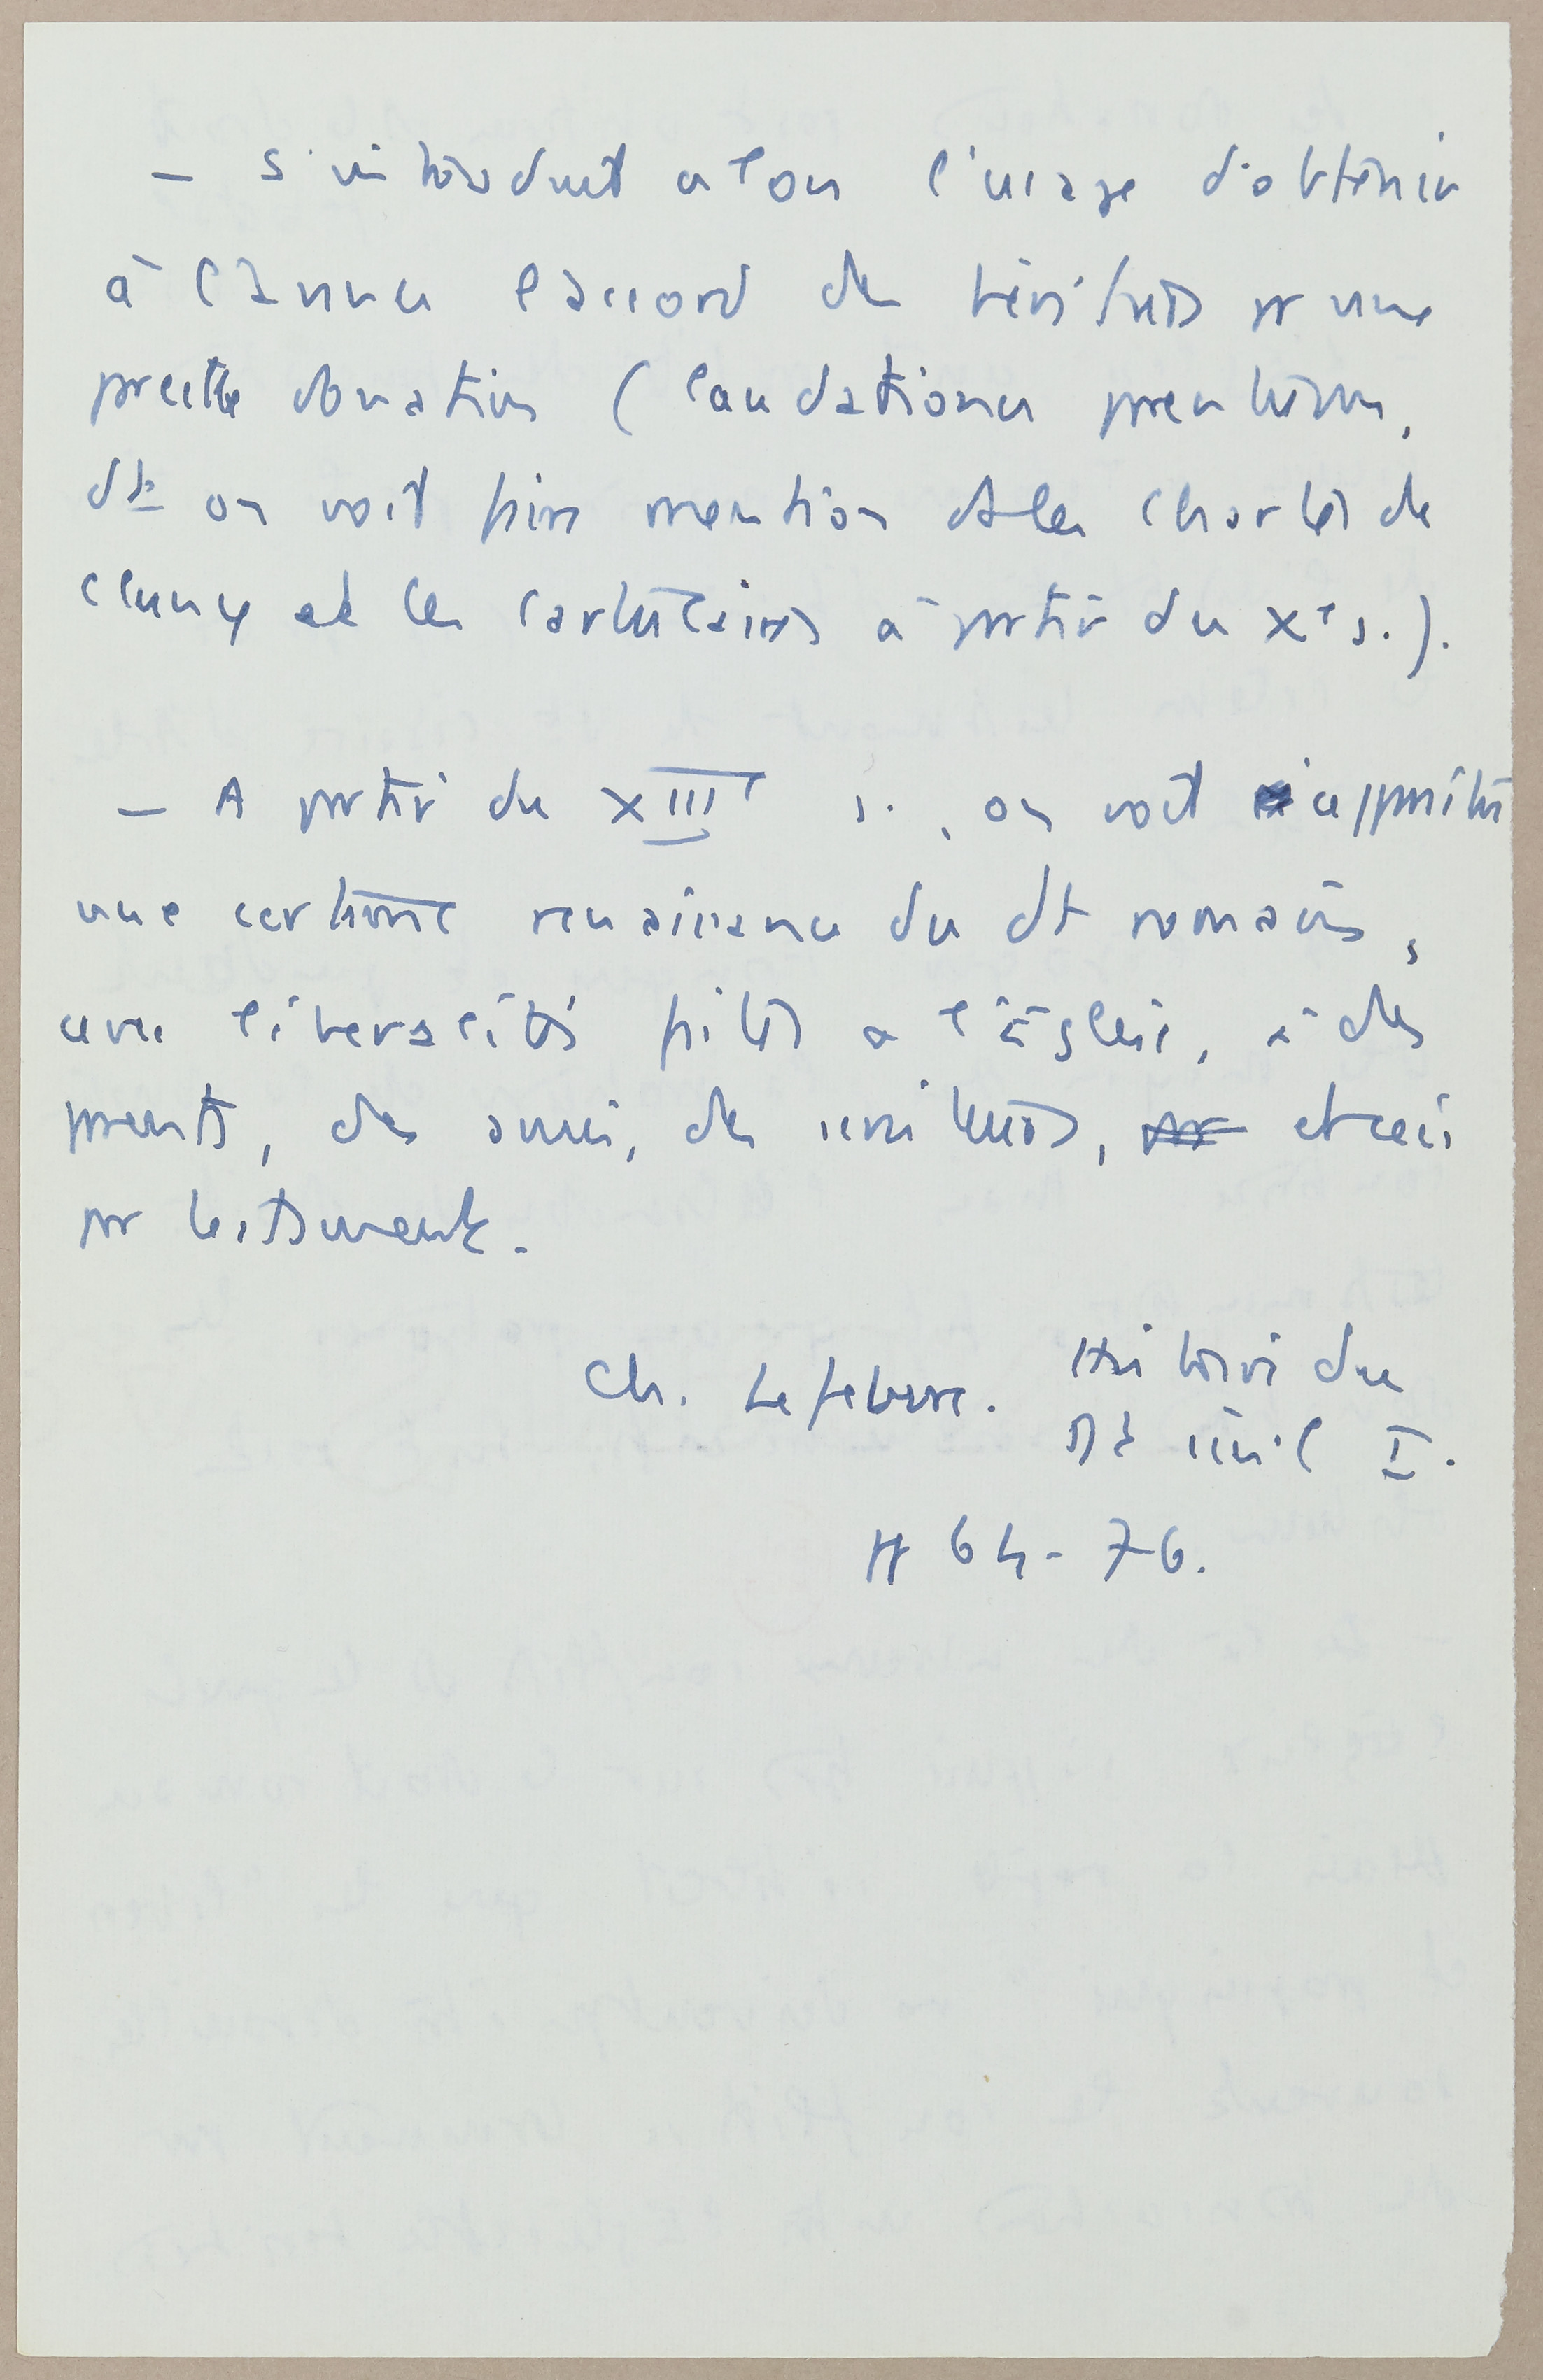 – s'introduit alors l'usage d'obtenir
à l'avance l'accord des héritiers pr une
pareille donation (laudationes parentum,
dt on voit faire mention ds les chartes de
Cluny et les cartulaires à partir du Xe s.).
– A partir du XIIIe s., on voit apparaître
une certaine renaissance du dt romain,
avec libéralités faites à l'église, à des
parents, des amis, des serviteurs, et ceci
par testament.
Ch. Lefebvre. Histoire du
Dt civil I.
pp 64-76.